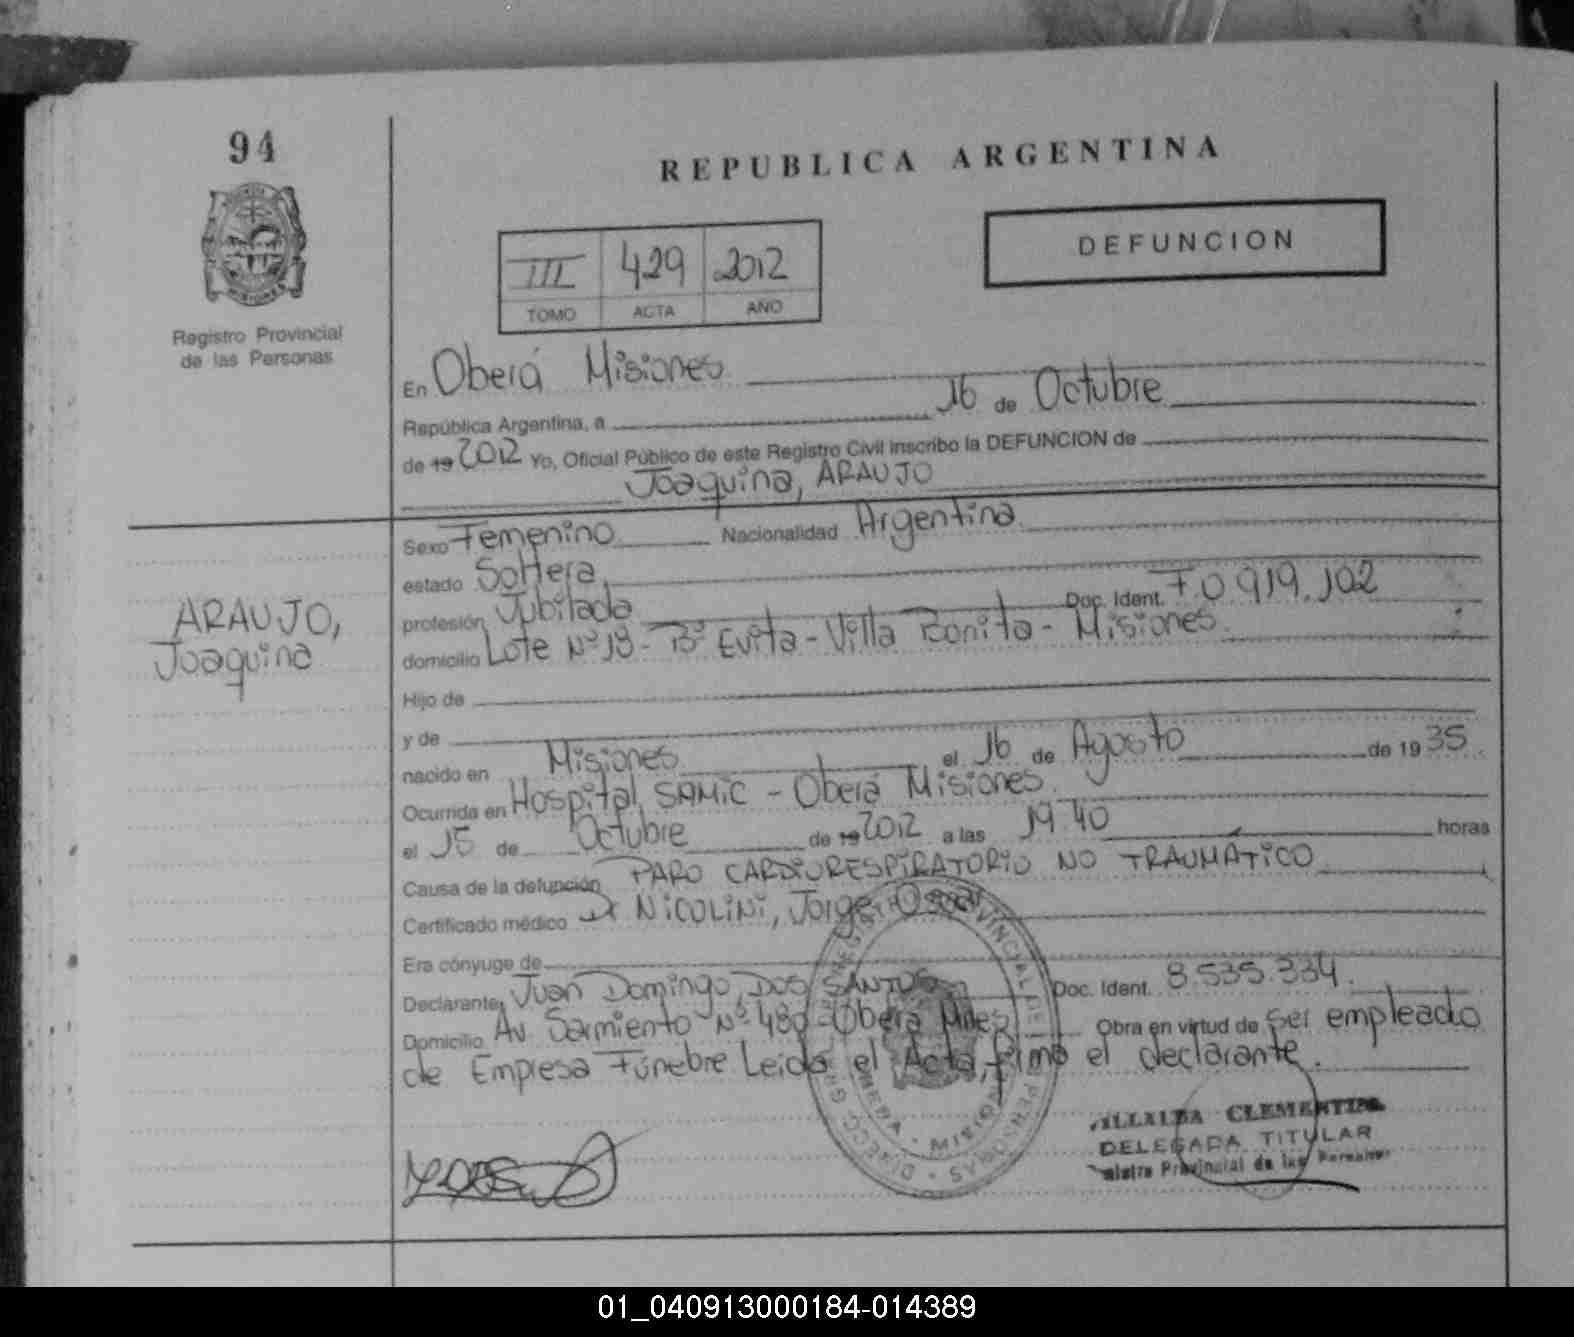 94
REPUBLICA ARGENTINA
DEFUNCION
III 429 2012
TOMO ACTA AÑO
MISIONES
Registro Provincial
de las Personas
En Oberá Misiones
República Argentina, a 16 de Octubre
de 19 2012 Yo, Oficial Público de este Registro Civil inscribo la DEFUNCION de
Joaquina, ARAUJO
ARAUJO,
Joaquina
Sexo Femenino Nacionalidad Argentina
estado Soltera
profesión Jubilada Doc. Ident. F.0 919.102
domicilio Lote Nº 18 - Bº Evita - Villa Bonita - Misiones.
Hijo de
y de
nacido en Misiones el 16 de Agosto de 19 35
Ocurrida en Hospital SAMIC - Oberá Misiones.
el 15 de Octubre de 19 2012 a las 19:40 horas
Causa de la defunción PARO CARDIORESPIRATORIO NO TRAUMATICO
Certificado médico Dr NICOLINI, Jorge Oscar
Era cónyuge de
Declarante, Juan Domingo, DOS SANTOS Doc. Ident. 8.535.334.
Domicilio Av. Sarmiento Nº 480 - Oberá Mnes Obra en virtud de ser empleado
de Empresa Fúnebre Leida el Acta, firma el declarante.
VILLALBA CLEMENTINA
DELEGADA TITULAR
Provincial de las Personas
01_040913000184-014389